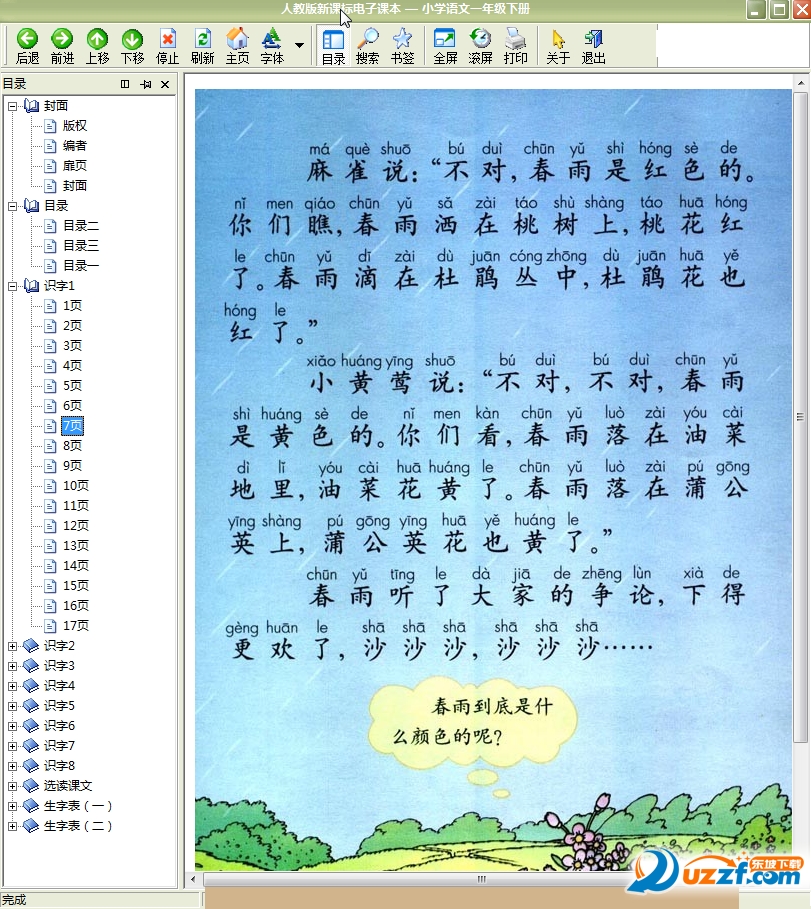 人教版新课标电子课本 — 小学语文一年级下册
后退 前进 上移 下移 停止 刷新 主页 字体 目录 搜索 书签 全屏 滚屏 打印 关于 退出
目录
封面
版权
编者
扉页
封面
目录
目录二
目录三
目录一
识字1
1页
2页
3页
4页
5页
6页
7页
8页
9页
10页
11页
12页
13页
14页
15页
16页
17页
识字2
识字3
识字4
识字5
识字6
识字7
识字8
选读课文
生字表（一）
生字表（二）
má què shuō bú duì chūn yǔ shì hóng sè de
麻雀说：“不对，春雨是红色的。
nǐ men qiáo chūn yǔ sǎ zài táo shù shàng táo huā hóng
你们瞧，春雨洒在桃树上，桃花红
le chūn yǔ dī zài dù juān cóng zhōng dù juān huā yě
了。春雨滴在杜鹃丛中，杜鹃花也
hóng le
红了。”
xiǎo huáng yīng shuō bú duì bú duì chūn yǔ
小黄莺说：“不对，不对，春雨
shì huáng sè de nǐ men kàn chūn yǔ luò zài yóu cài
是黄色的。你们看，春雨落在油菜
dì lǐ yóu cài huā huáng le chūn yǔ luò zài pú gōng
地里，油菜花黄了。春雨落在蒲公
yīng shàng pú gōng yīng huā yě huáng le
英上，蒲公英花也黄了。”
chūn yǔ tīng le dà jiā de zhēng lùn xià de
春雨听了大家的争论，下得
gèng huān le shā shā shā shā shā shā
更欢了，沙沙沙，沙沙沙……
春雨到底是什
么颜色的呢？
完成
东坡下载
uzzf.com